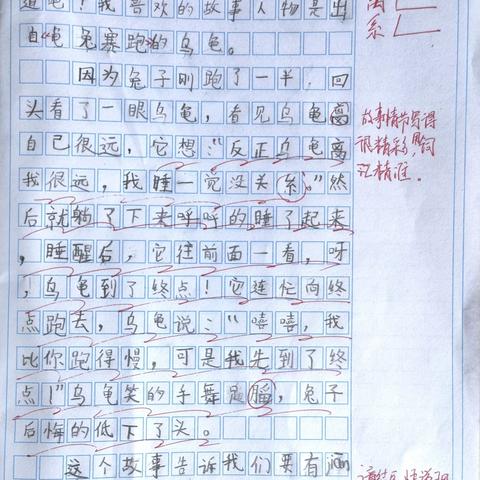 道吧！我喜欢的故事人物是出
自“龟兔赛跑”的乌龟。
因为兔子刚跑了一半，回
头看了一眼乌龟，看见乌龟离
自己很远，它想：“反正乌龟离
我很远，我睡一觉没关系。”然
后就躺了下来呼呼的睡了起来
，睡醒后，它往前面一看，呀
，乌龟到了终点！它连忙向终
点跑去，乌龟说：“嘻嘻，我
比你跑得慢，可是我先到了终
点！”乌龟笑的手舞足蹈，兔子
后悔的低下了头。
这个故事告诉我们要有涵
系
故事情节写得
很精彩，用词
汇精准。